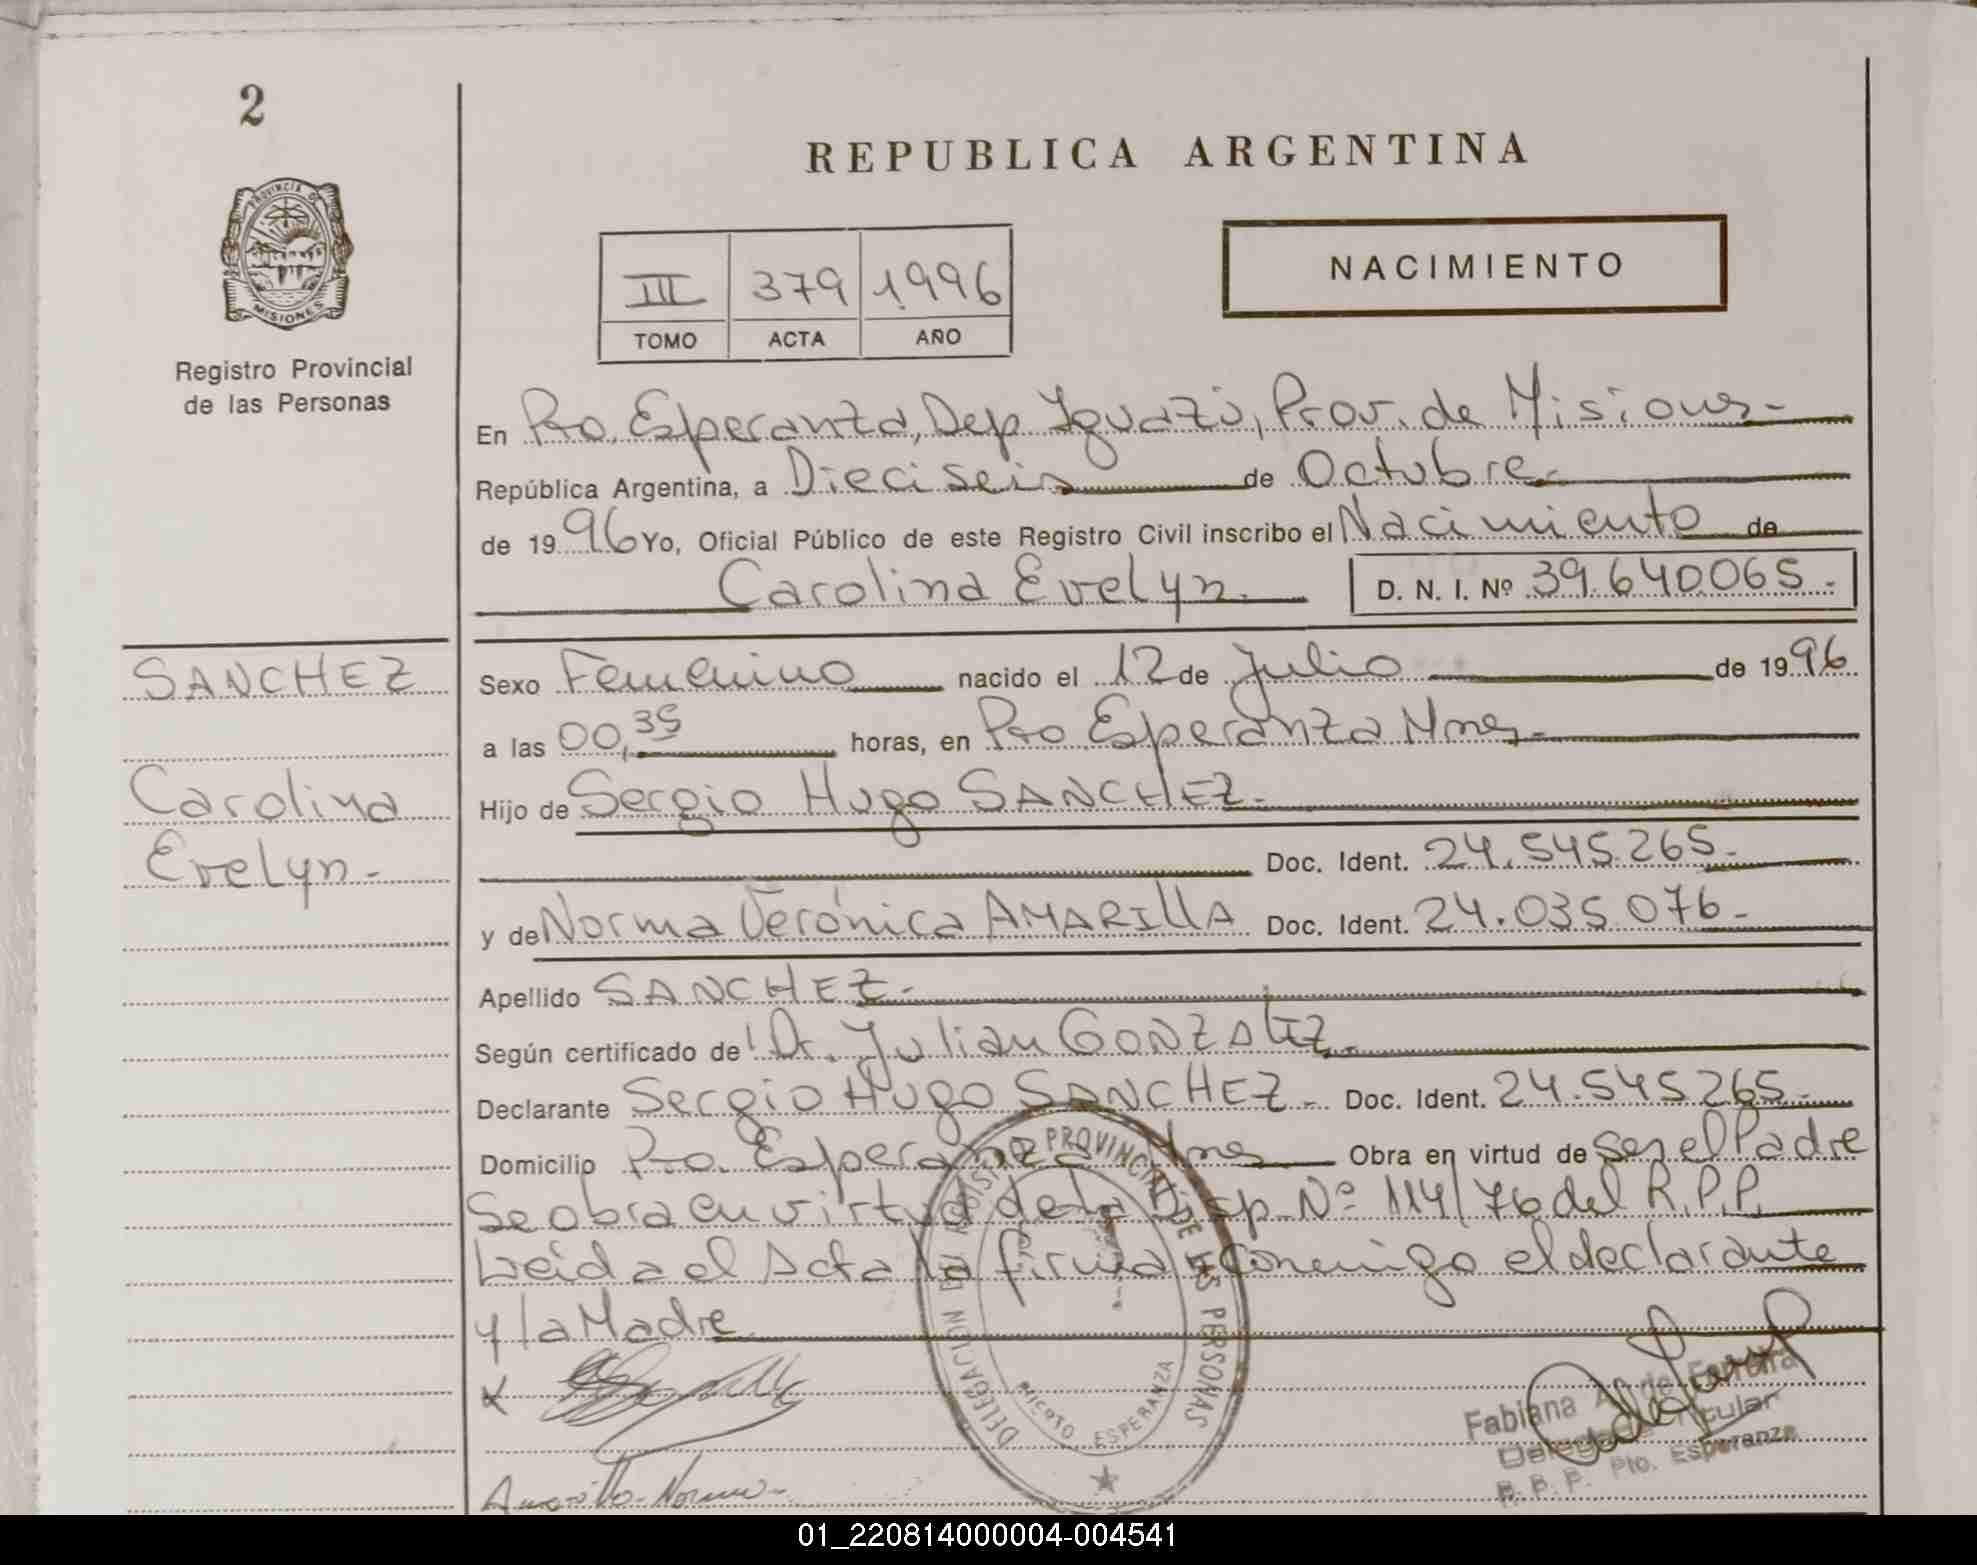 2
REPUBLICA ARGENTINA
PROVINCIA DE
MISIONES
Registro Provincial
de las Personas
III 379 1996
TOMO ACTA AÑO
NACIMIENTO
En Pto. Esperanza, Dep Iguazú, Prov. de Misiones-
República Argentina, a Dieciseis de Octubre.-
de 1996 Yo, Oficial Público de este Registro Civil inscribo el Nacimiento de
Carolina Evelyn. D. N. I. Nº 39.640065.-
SANCHEZ
Carolina
Evelyn.-
Sexo Femenino nacido el 12 de Julio de 1996
a las 00,35 horas, en Pto Esperanza Mnes.-
Hijo de Sergio Hugo SANCHEZ.-
Doc. Ident. 24.545.265.-
y de Norma Verónica AMARILLA Doc. Ident. 24.035.076.-
Apellido SANCHEZ.-
Según certificado de Dr. Julian GONZALEZ.-
Declarante Sergio Hugo SANCHEZ.- Doc. Ident. 24.545.265.-
Domicilio Pto. Esperanza Mnes Obra en virtud de ser el Padre
Se obra en virtud de la Disp. Nº 114/76 del R.P.P.
Leida el Acta la firma conmigo el declarante
y la Madre
DELEGACION REGISTRO PROVINCIAL DE LAS PERSONAS
PUERTO ESPERANZA
Amarilla Norma-
Fabiana de Ferreira
Titular
Pto. Esperanza
01_220814000004-004541